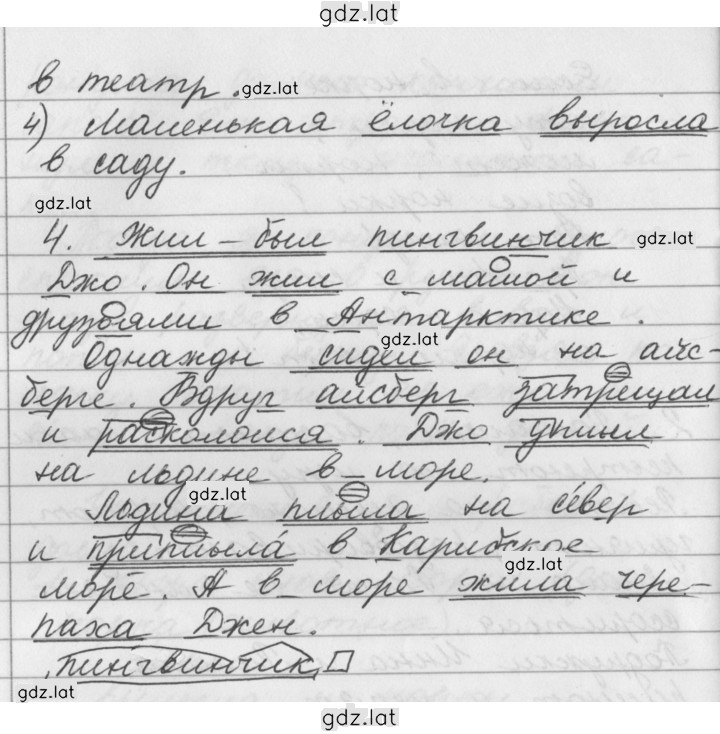 gdz.lat
в театр. gdz.lat
4) Маленькая ёлочка выросла
в саду.
gdz.lat
4. Жил-был пингвинчик gdz.lat
Джо. Он жил с мамой и
друзьями в Антарктике.
gdz.lat
Однажды сидел он на айс-
берге. Вдруг айсберг затрещал
и раскололся. Джо уплыл
на льдине в море.
gdz.lat
Льдина плыла на север
и приплыла в Карибское
gdz.lat
море. А в море жила чере-
паха Джен.
пингвинчик,
gdz.lat
gdz.lat